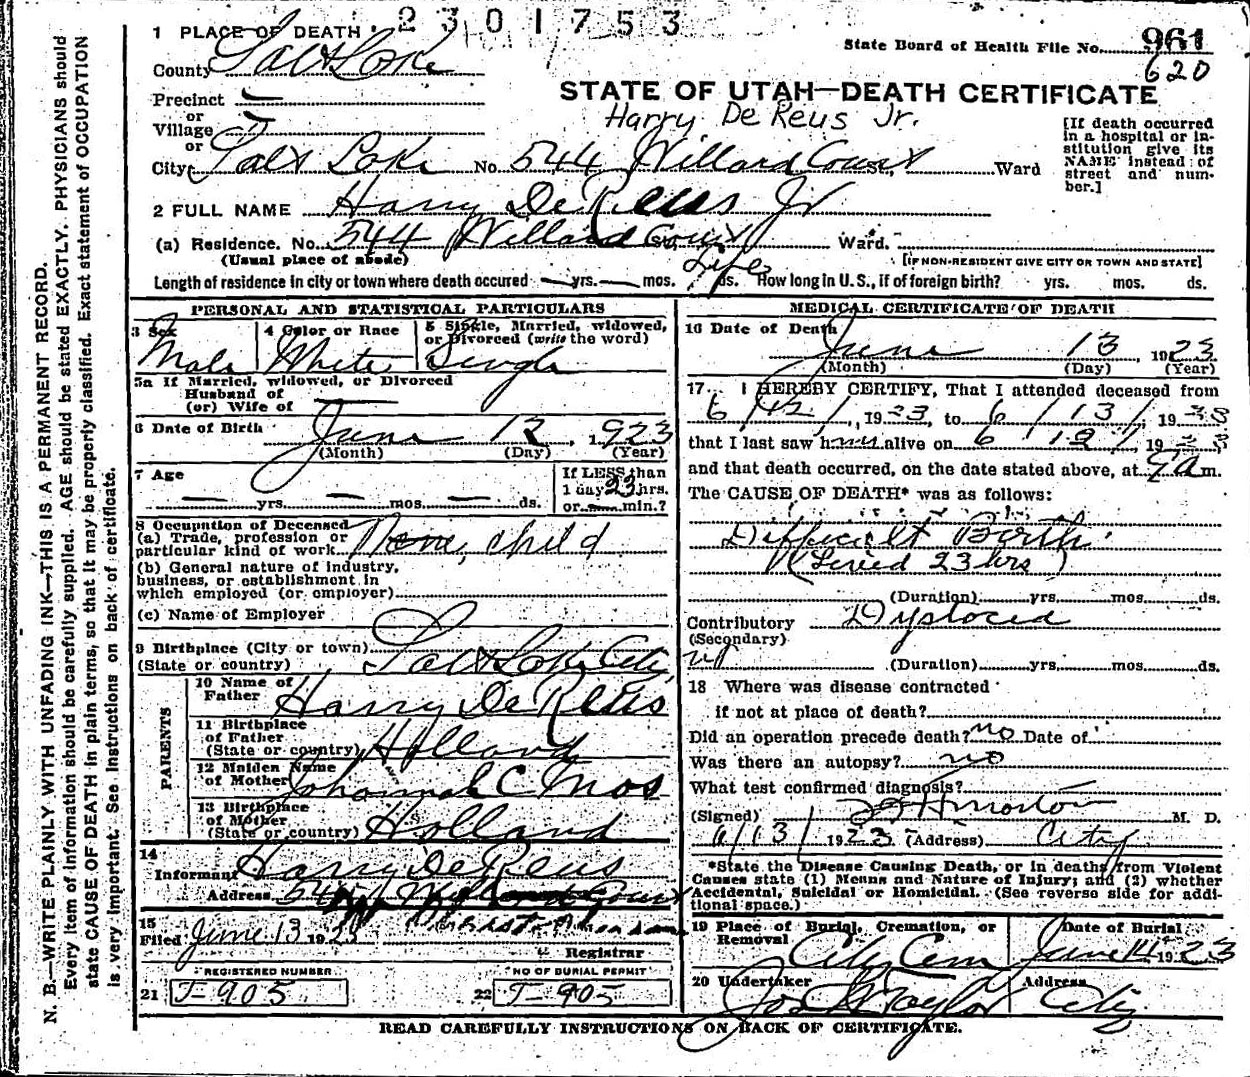 2301753
1 PLACE OF DEATH
State Board of Health File No. 961
620
County Salt Lake
STATE OF UTAH—DEATH CERTIFICATE
Precinct —
Harry De Reus Jr.
or
Village —
or
City Salt Lake No. 544 Willard Court St., Ward
[If death occurred in a hospital or institution give its NAME instead of street and number.]
2 FULL NAME Harry De Reus Jr
(a) Residence. No. 544 Willard Court St. Ward.
(Usual place of abode)
[IF NON-RESIDENT GIVE CITY OR TOWN AND STATE]
Length of residence in city or town where death occured — yrs. — mos. Life ds. How long in U.S., if of foreign birth? yrs. mos. ds.
PERSONAL AND STATISTICAL PARTICULARS
3 Sex Male
4 Color or Race White
5 Single, Married, widowed, or Divorced (write the word) Single
5a If Married, widowed, or Divorced
Husband of
(or) Wife of —
6 Date of Birth June 12, 1923
(Month) (Day) (Year)
7 Age — yrs. — mos. — ds.
If LESS than 1 day 23 hrs. or — min.?
8 Occupation of Deceased
(a) Trade, profession or particular kind of work None, child
(b) General nature of industry, business, or establishment in which employed (or employer)
(c) Name of Employer
9 Birthplace (City or town) Salt Lake City
(State or country)
PARENTS
10 Name of Father Harry De Reus
11 Birthplace of Father (State or country) Holland
12 Maiden Name of Mother Johannah C Mos
13 Birthplace of Mother (State or country) Holland
14
Informant Harry De Reus
Address 544 Willard Court
15
Filed June 13 1923
Registrar
REGISTERED NUMBER
21 J-905
NO OF BURIAL PERMIT
22 J-905
MEDICAL CERTIFICATE OF DEATH
16 Date of Death June 13, 1923
(Month) (Day) (Year)
17. I HEREBY CERTIFY, That I attended deceased from
6/12/, 1923, to 6/13/, 1923
that I last saw him alive on 6/12/, 1923
and that death occurred, on the date stated above, at 9 a m.
The CAUSE OF DEATH* was as follows:
Difficult Birth
(Lived 23 hrs)
(Duration) yrs. mos. ds.
Contributory Dystocia
(Secondary)
(Duration) yrs. mos. ds.
18 Where was disease contracted
if not at place of death?
Did an operation precede death? no Date of
Was there an autopsy? no
What test confirmed diagnosis?
(Signed) Morton M. D.
6/13/1923 (Address) City
*State the Disease Causing Death, or in deaths from Violent
Causes state (1) Means and Nature of Injury; and (2) whether
Accidental, Suicidal or Homicidal. (See reverse side for additional space.)
19 Place of Burial, Cremation, or Removal City Cem
Date of Burial June 14 1923
20 Undertaker Jos Wm Taylor
Address City
READ CAREFULLY INSTRUCTIONS ON BACK OF CERTIFICATE.
N. B.—WRITE PLAINLY WITH UNFADING INK—THIS IS A PERMANENT RECORD.
Every item of information should be carefully supplied. AGE should be stated EXACTLY. PHYSICIANS should
state CAUSE OF DEATH in plain terms, so that it may be properly classified. Exact statement of OCCUPATION
is very important. See instructions on back of certificate.